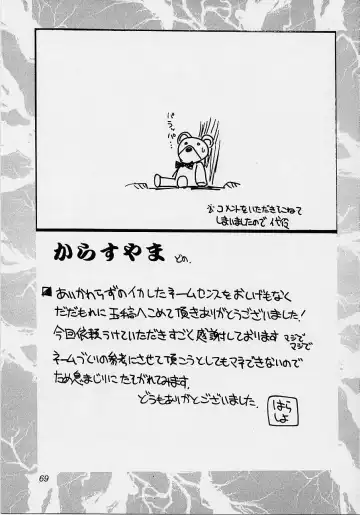 パラッパ…
※コメントをいただきそこねて
しまいましたので代役
からすやま どの。
あいかわらずのイカしたネームセンスをおしげもなく
だだもれに玉稿へこめて頂きありがとうございました!
今回依頼うけていただきすごく感謝しております マジで
マジで
ネームづくりの参考にさせて頂こうとしてもマネできないので
ため息まじりに たてがれてみます。
どうもありがとございました。
はら
しょ
69